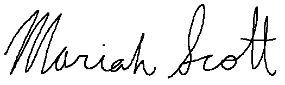 Mariah Scott